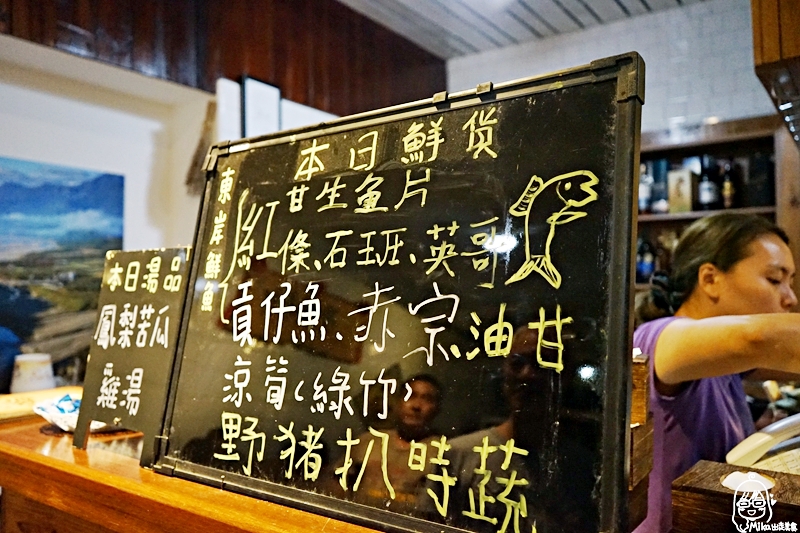 本日鮮貨
東岸鮮魚
甘生魚片
紅條、石班、英哥
貢仔魚、赤宗、油甘
涼筍(綠竹)
野豬扒時蔬
本日湯品
鳳梨苦瓜
雞湯
Mika出走美食